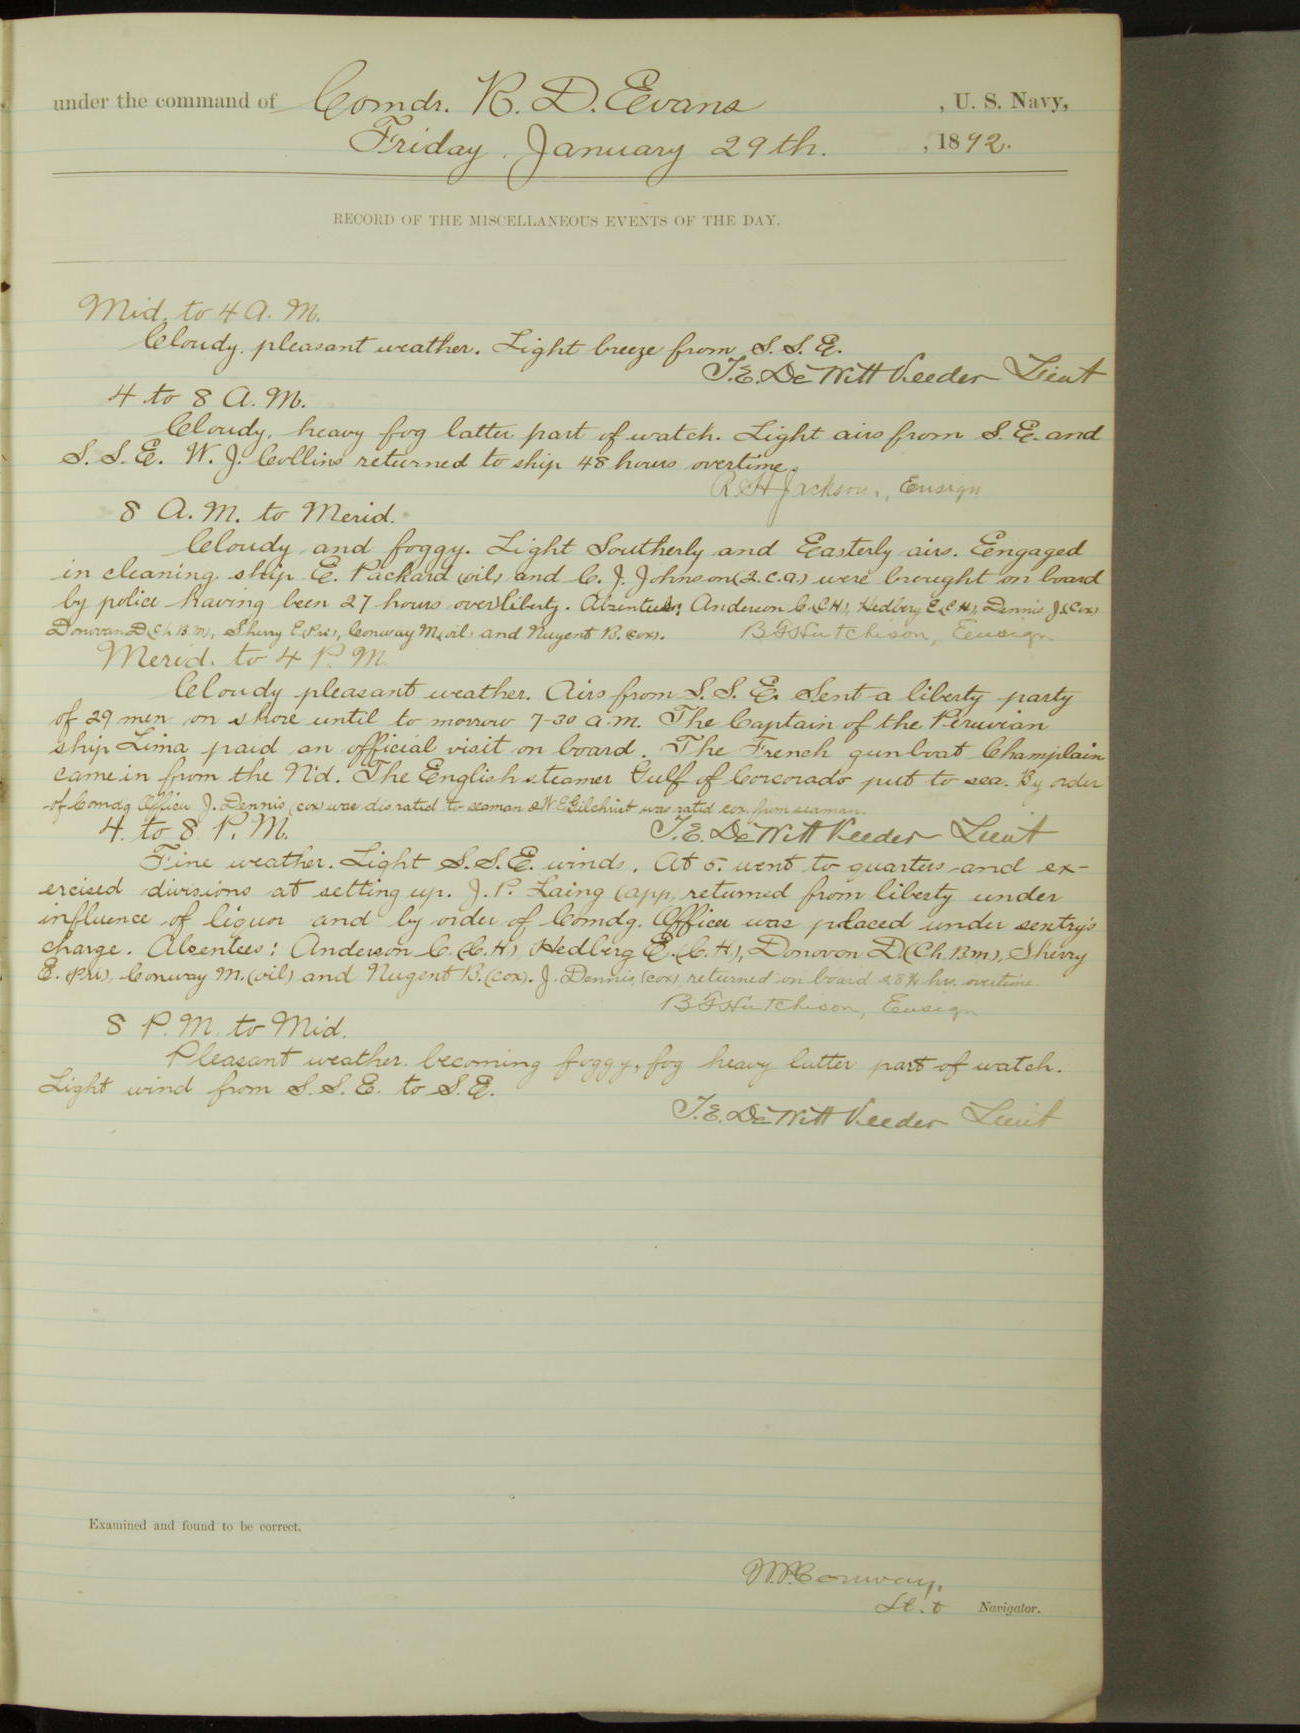 under the command of Comdr. R. D. Evans, U. S. Navy,
Friday, January 29th., 1892.
RECORD OF THE MISCELLANEOUS EVENTS OF THE DAY.
Mid. to 4 A. M.
Cloudy, pleasant weather. Light breeze from S. S. E.
T.E. DeWitt Veeder Lieut
4 to 8 A. M.
Cloudy, heavy fog latter part of watch. Light airs from S. E. and
S. S. E. W. J. Collins returned to ship 48 hours overtime.
R H Jackson, Ensign
8 A. M. to Merid.
Cloudy and foggy. Light Southerly and Easterly airs. Eengaged
in cleaning ship E. Packard (oil) and C. J. Johnson (2.c.a.) were brought on board
by police having been 27 hours over liberty. Absentees: Anderson C. (C.H), Hedberg E. (C.H), Dennis J. (Cox)
Donovan D (Ch. B m), Sherry E. (Pri), Conway M. (oil) and Nugent B. (cox).
B G Hutchison, Eensign
Merid. to 4 P. M.
Cloudy pleasant weather. Airs from S. S. E. Sent a liberty party
of 29 men on shore until to morrow 7-30 a.m. The Captain of the Peruvian
ship Lima paid an official visit on board. The French gunboat Champlain
came in from the N'd. The English steamer Gulf of Corcorado put to sea. By order
of Comdg Officer J. Dennis (cox) was dis rated to seaman & W. E. Gilchrist was rated cox. from seaman.
4. to 8 P. M.
T.E. DeWitt Veeder Lieut
Fine weather. Light S. S. E. winds. At 5. went to quarters and ex-
ercised divisions at setting up. J. P. Laing (app) returned from liberty under
influence of liquor and by order of Comdg. Officer was placed under sentry's
charge. Absentees: Anderson C. (C.H), Hedberg E. (C.H.), Donovon D (Ch. B.m), Sherry
E. (Pri), Conway M. (oil) and Nugent B. (cox). J. Dennis, (cox) returned on board hrs. overtime
B G Hutchison, Eensign
8 P. M. to Mid.
Pleasant weather becoming foggy, fog heavy latter part of watch.
Light wind from S. S. E. to S. E.
T.E. DeWitt Veeder Lieut
Examined and found to be correct.
W.P. Conway,
Lt. Navigator.